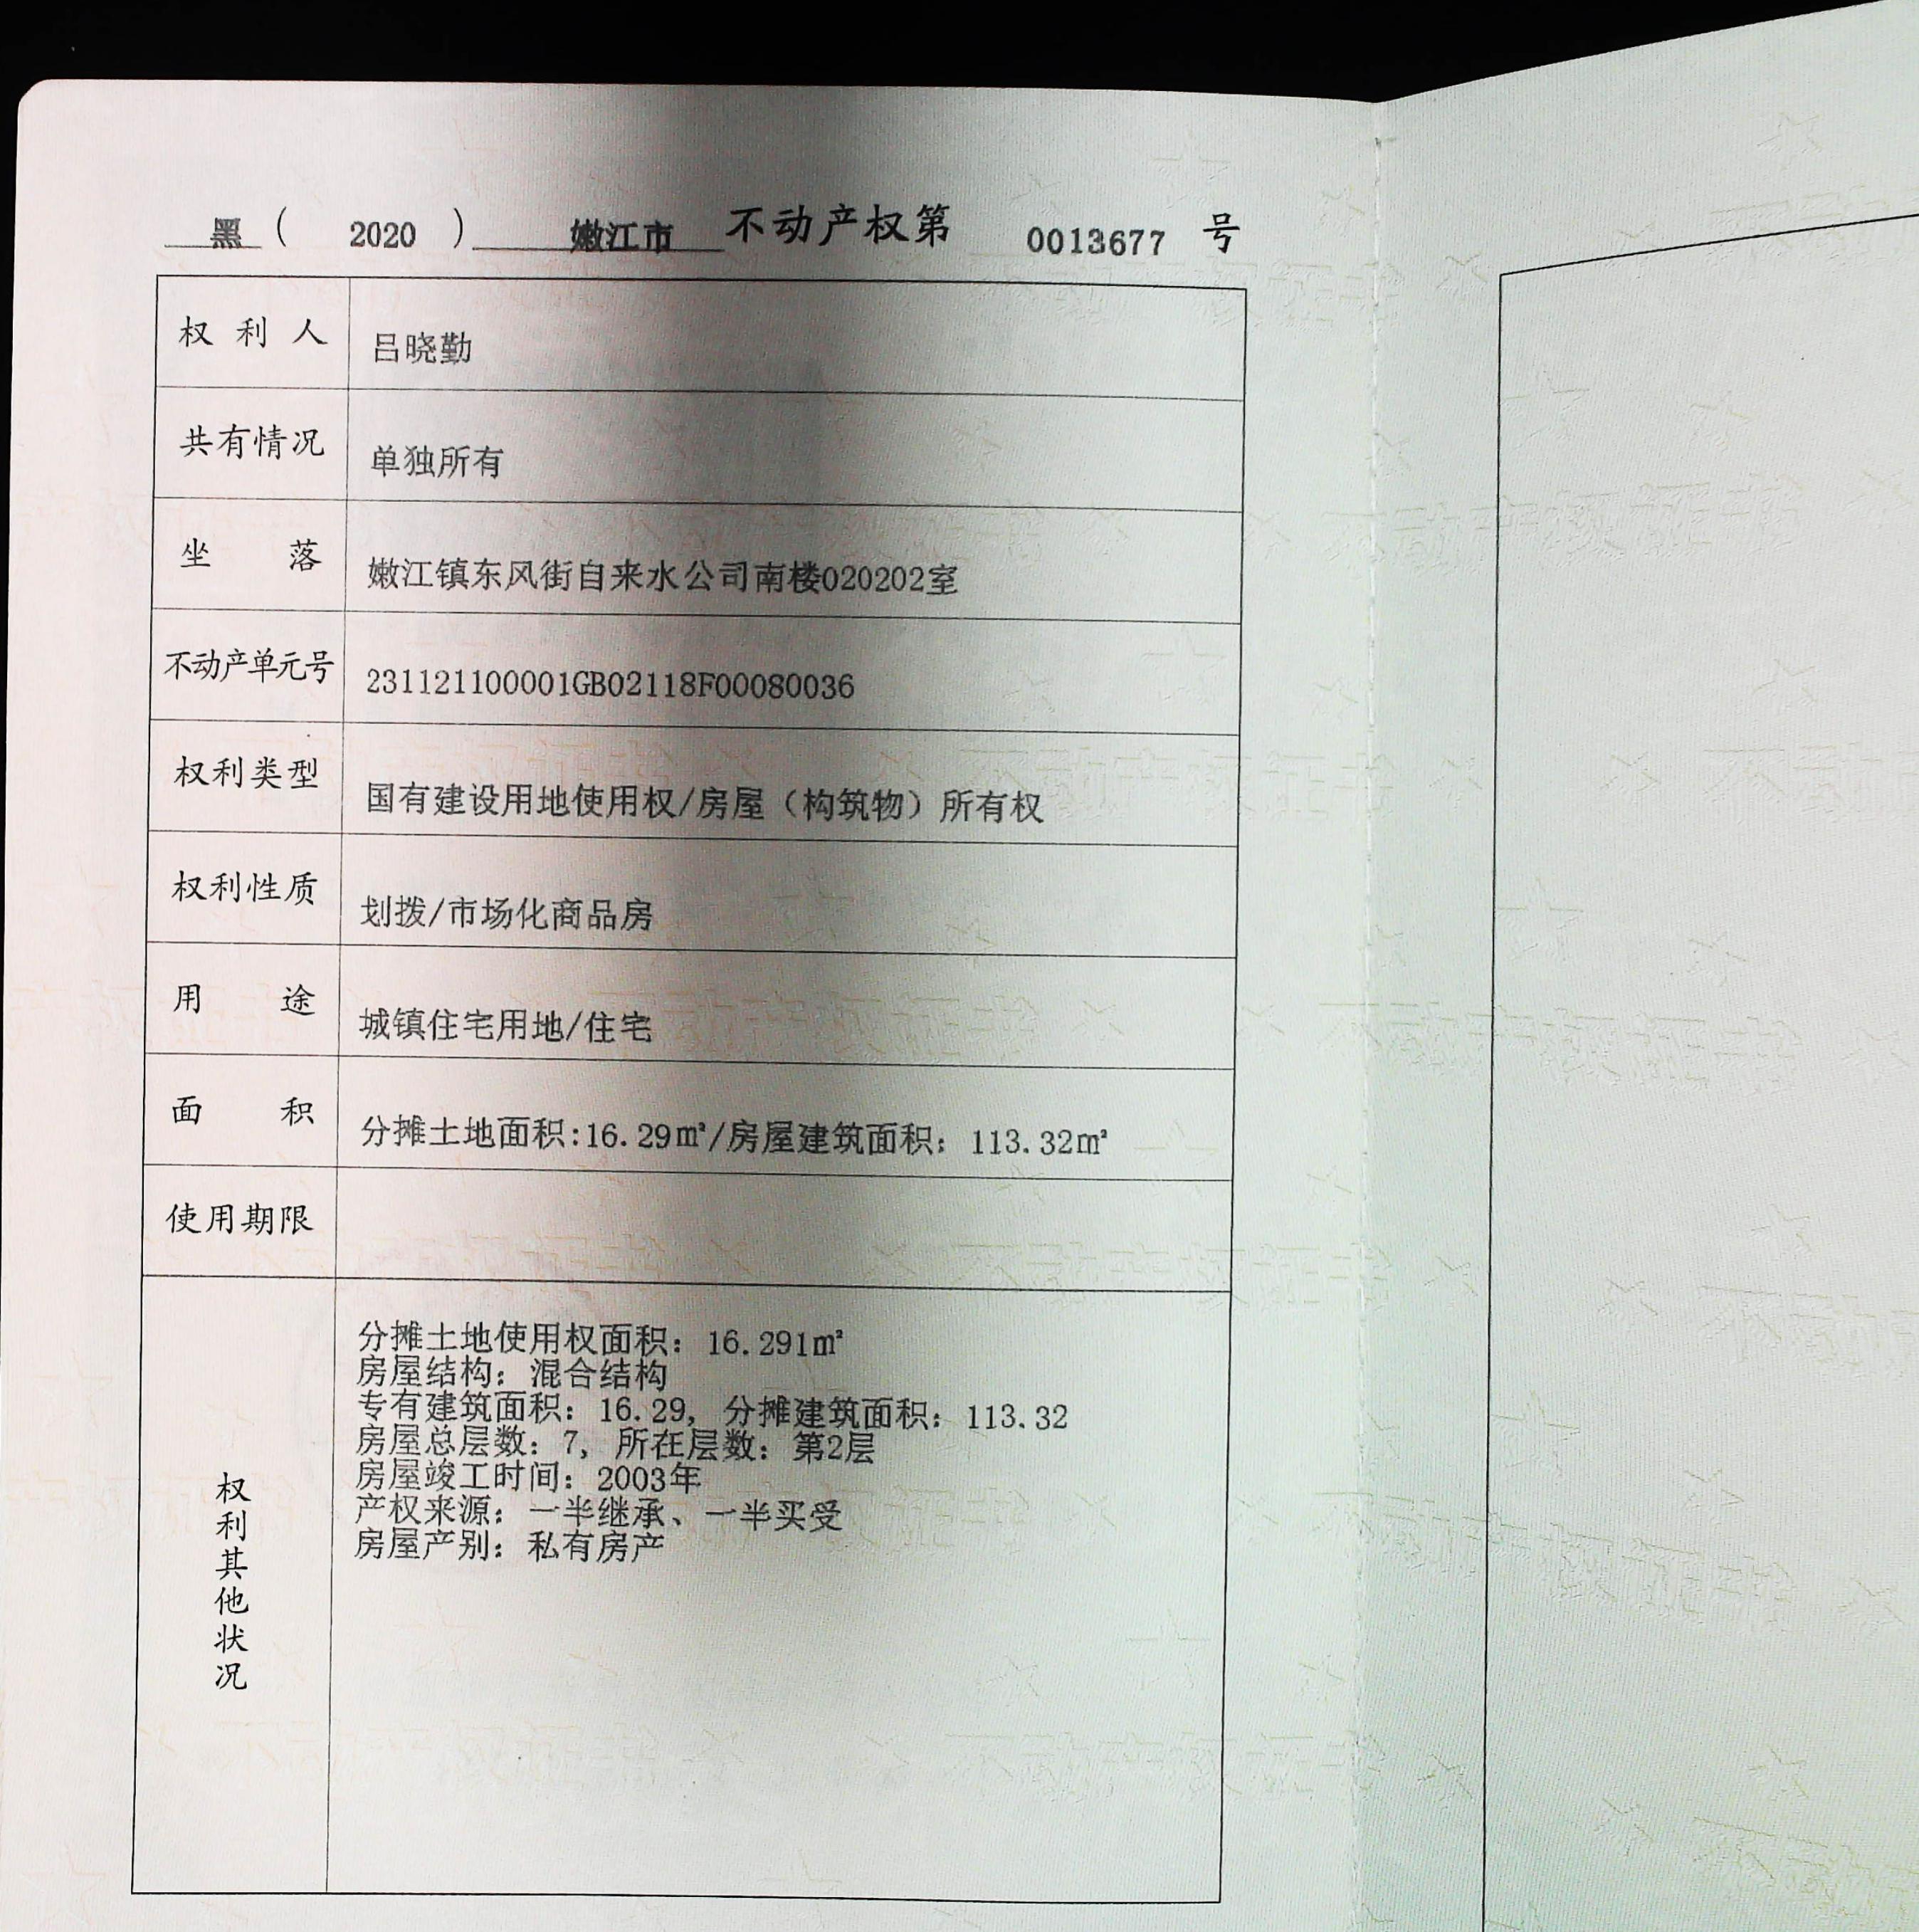 黑（ 2020 ） 嫩江市 不动产权第 0013677 号
权利人 吕晓勤
共有情况 单独所有
坐落 嫩江镇东风街自来水公司南楼020202室
不动产单元号 231121100001GB02118F00080036
权利类型 国有建设用地使用权/房屋（构筑物）所有权
权利性质 划拨/市场化商品房
用途 城镇住宅用地/住宅
面积 分摊土地面积:16.29㎡/房屋建筑面积：113.32㎡
使用期限
权利其他状况
分摊土地使用权面积：16.291㎡
房屋结构：混合结构
专有建筑面积：16.29，分摊建筑面积：113.32
房屋总层数：7，所在层数：第2层
房屋竣工时间：2003年
产权来源：一半继承、一半买受
房屋产别：私有房产